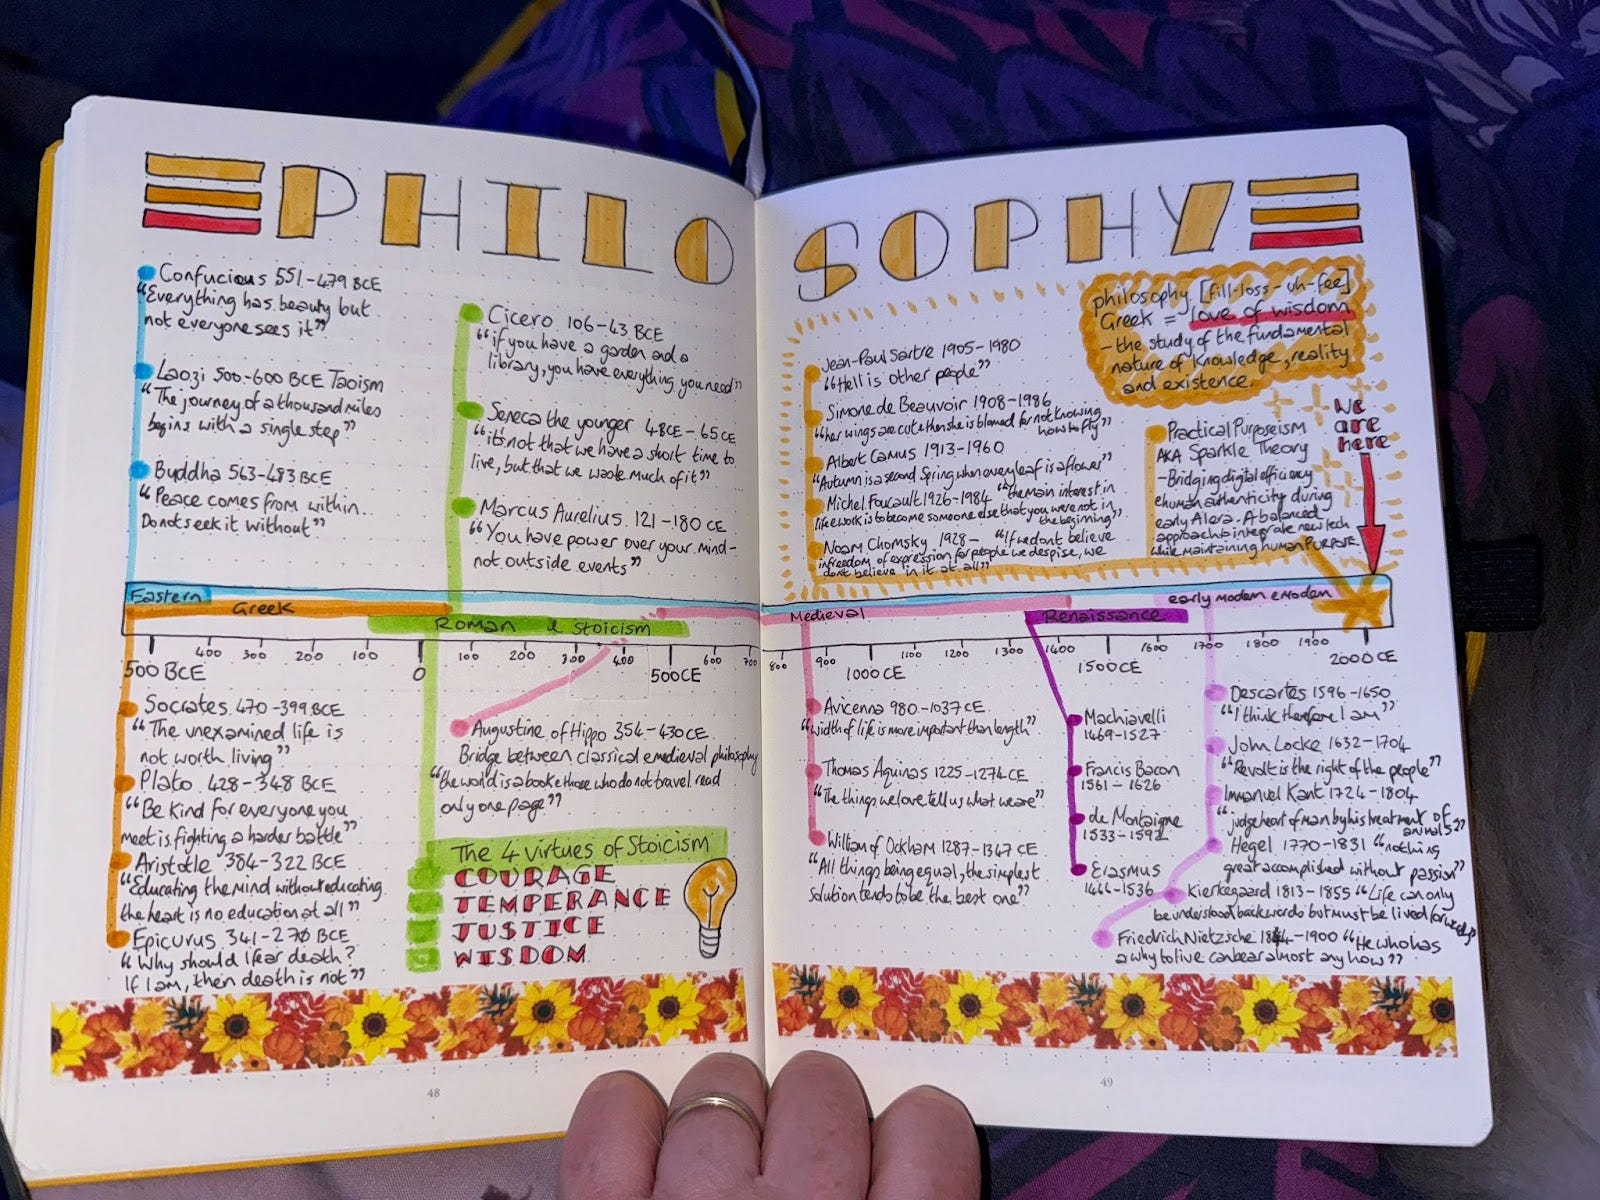 PHILOSOPHY
Confucious 551-479 BCE
"Everything has beauty but
not everyone sees it"
Laozi 500-600 BCE Taoism
"The journey of a thousand miles
begins with a single step"
Buddha 563-483 BCE
"Peace comes from within...
Do not seek it without"
Cicero 106-43 BCE
"if you have a garden and a
library, you have everything you need"
Seneca the younger 4BCE-65CE
"it's not that we have a short time to
live, but that we waste much of it"
Marcus Aurelius 121-180 CE
"You have power over your mind-
not outside events"
Jean-Paul Sartre 1905-1980
"Hell is other people"
Simone de Beauvoir 1908-1986
"her wings are cut then she is blamed for not knowing
how to fly"
Albert Camus 1913-1960
"Autumn is a second Spring when every leaf is a flower"
Michel Foucault 1926-1984 "the main interest in
life & work is to become someone else that you were not in
the beginning"
Noam Chomsky 1928- "If we dont believe
in freedom of expression for people we despise, we
dont believe in it at all"
philosophy [fill-loss-uh-fee]
Greek = love of wisdom
- the study of the fundamental
nature of knowledge, reality
and existence.
We
are
here
Practical Purposeism
AKA Sparkle Theory
- Bridging digital efficiency
& human authenticity during
early AI era. A balanced
approach to integrate new tech
while maintaining human PURPOSE.
Eastern
Greek
Roman & Stoicism
Medieval
Renaissance
early modern & modern
500 BCE 400 300 200 100 0 100 200 300 400 500CE 600 700 800 900 1000CE 1100 1200 1300 1400 1500CE 1600 1700 1800 1900 2000CE
Socrates 470-399 BCE
"The unexamined life is
not worth living"
Plato 428-348 BCE
"Be Kind for everyone you
meet is fighting a harder battle"
Aristotle 384-322 BCE
"Educating the mind without educating
the heart is no education at all"
Epicurus 341-270 BCE
"Why should I fear death?
If I am, then death is not"
Augustine of Hippo 354-430CE
Bridge between classical & medieval philosophy
"the world is a book & those who do not travel read
only one page"
The 4 Virtues of Stoicism
COURAGE
TEMPERANCE
JUSTICE
WISDOM
Avicenna 980-1037CE
"width of life is more important than length"
Thomas Aquinas 1225-1274CE
"The things we love tell us what we are"
William of Ockham 1287-1347 CE
"All things being equal, the simplest
solution tends to be the best one"
Machiavelli
1469-1527
Francis Bacon
1561-1626
de Montaigne
1533-1592
Erasmus
1466-1536
Descartes 1596-1650
"I think therefore I am"
John Locke 1632-1704
"Revolt is the right of the people"
Immanuel Kant 1724-1804
"judge heart of man by his treatment of
animals"
Hegel 1770-1831 "nothing
great accomplished without passion"
Kierkegaard 1813-1855 "Life can only
be understood backwards but must be lived forwards"
Friedrich Nietzsche 1844-1900 "He who has
a why to live can bear almost any how"
48
49